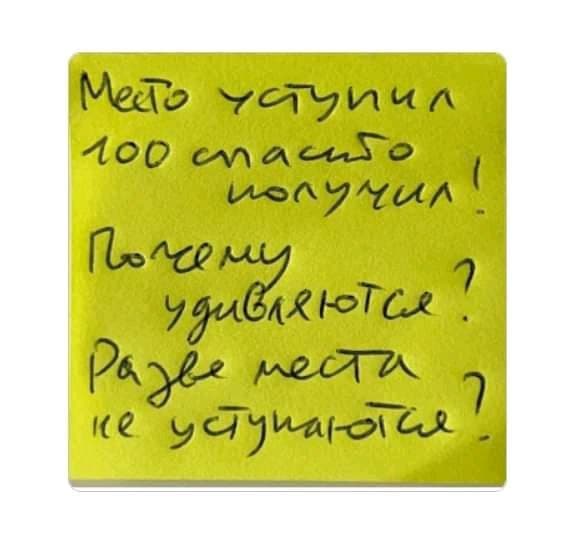 Место уступил
100 спасибо
получил!
Почему
удивляются?
Разве места
не уступаются?